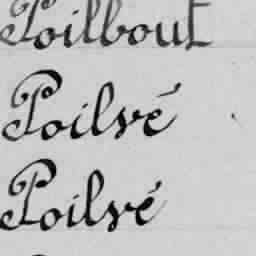 Poilbout
Poilvé
Poilvé